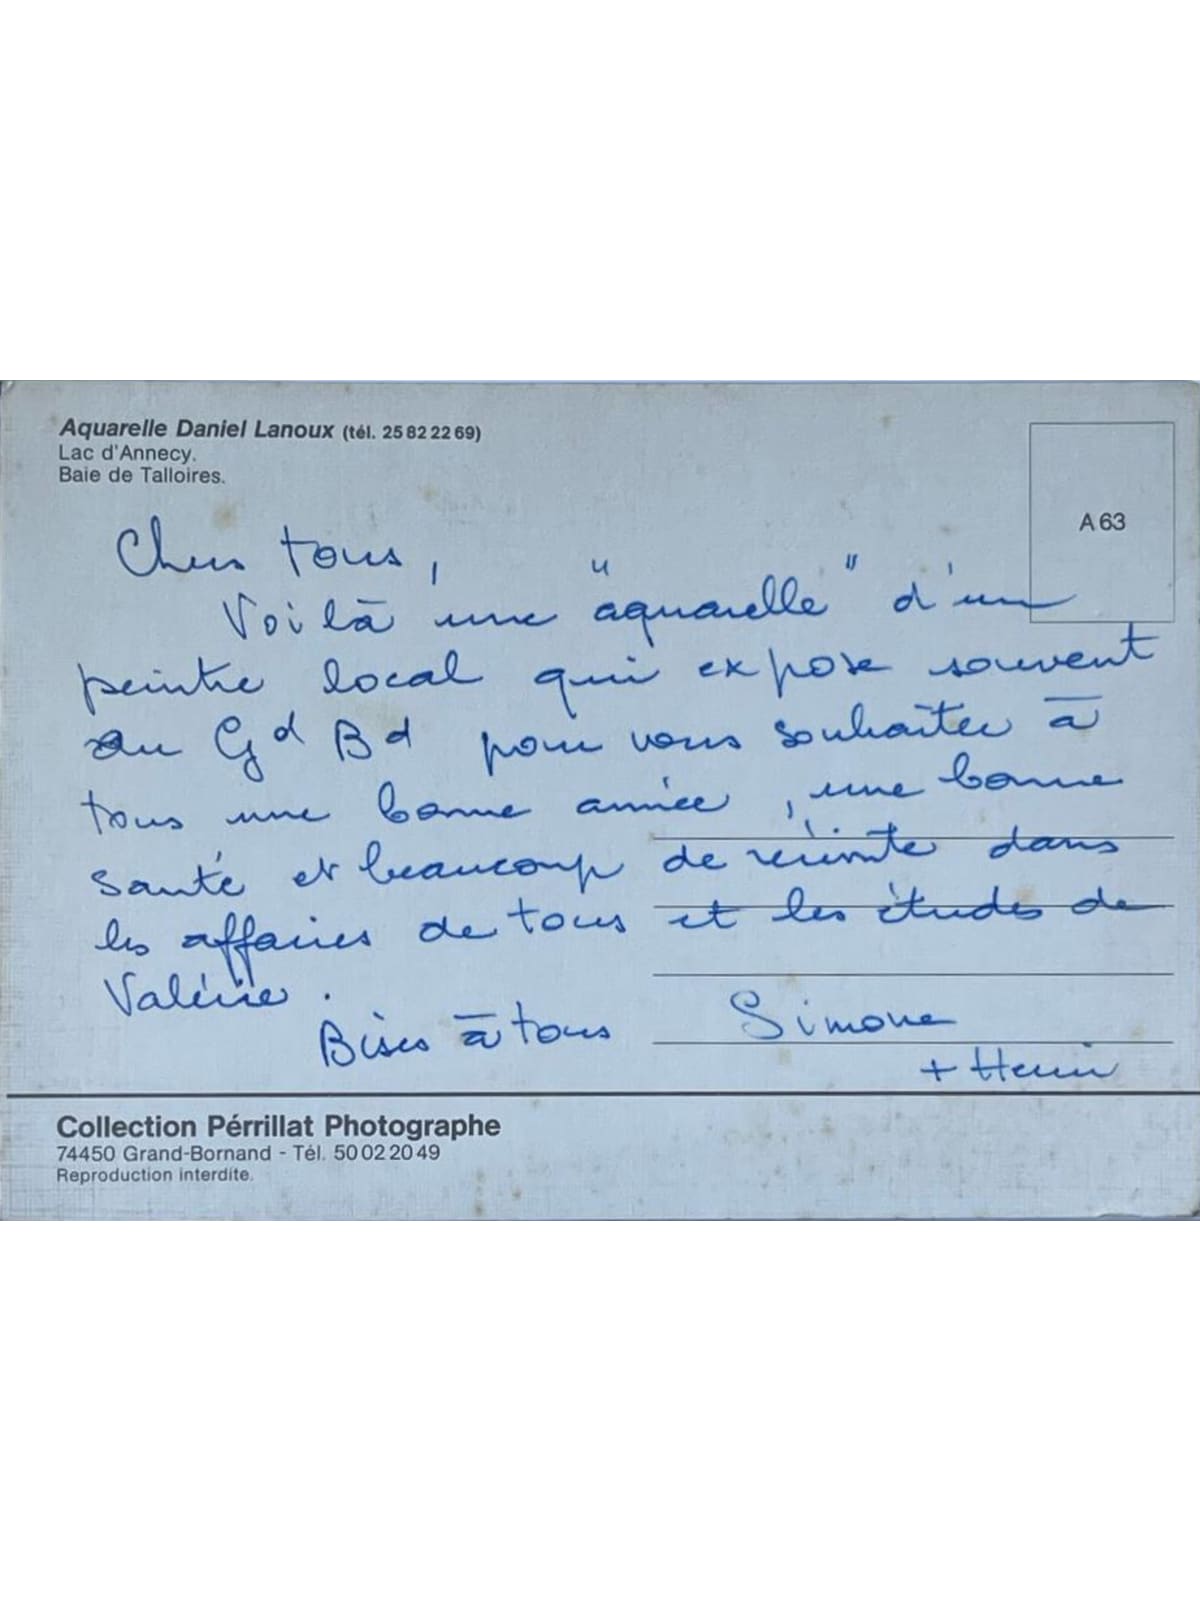 Aquarelle Daniel Lanoux (tél. 25 82 22 69)
Lac d'Annecy.
Baie de Talloires.
A 63
Chers tous,
Voilà une "aquarelle" d'un
peintre local qui expose souvent
au Gd Bd pour vous souhaiter à
tous une bonne année, une bonne
santé et beaucoup de réussite dans
les affaires de tous et les études de
Valérie.
Bises à tous Simone
+ Henri
Collection Pérrillat Photographe
74450 Grand-Bornand - Tél. 50 02 20 49
Reproduction interdite.